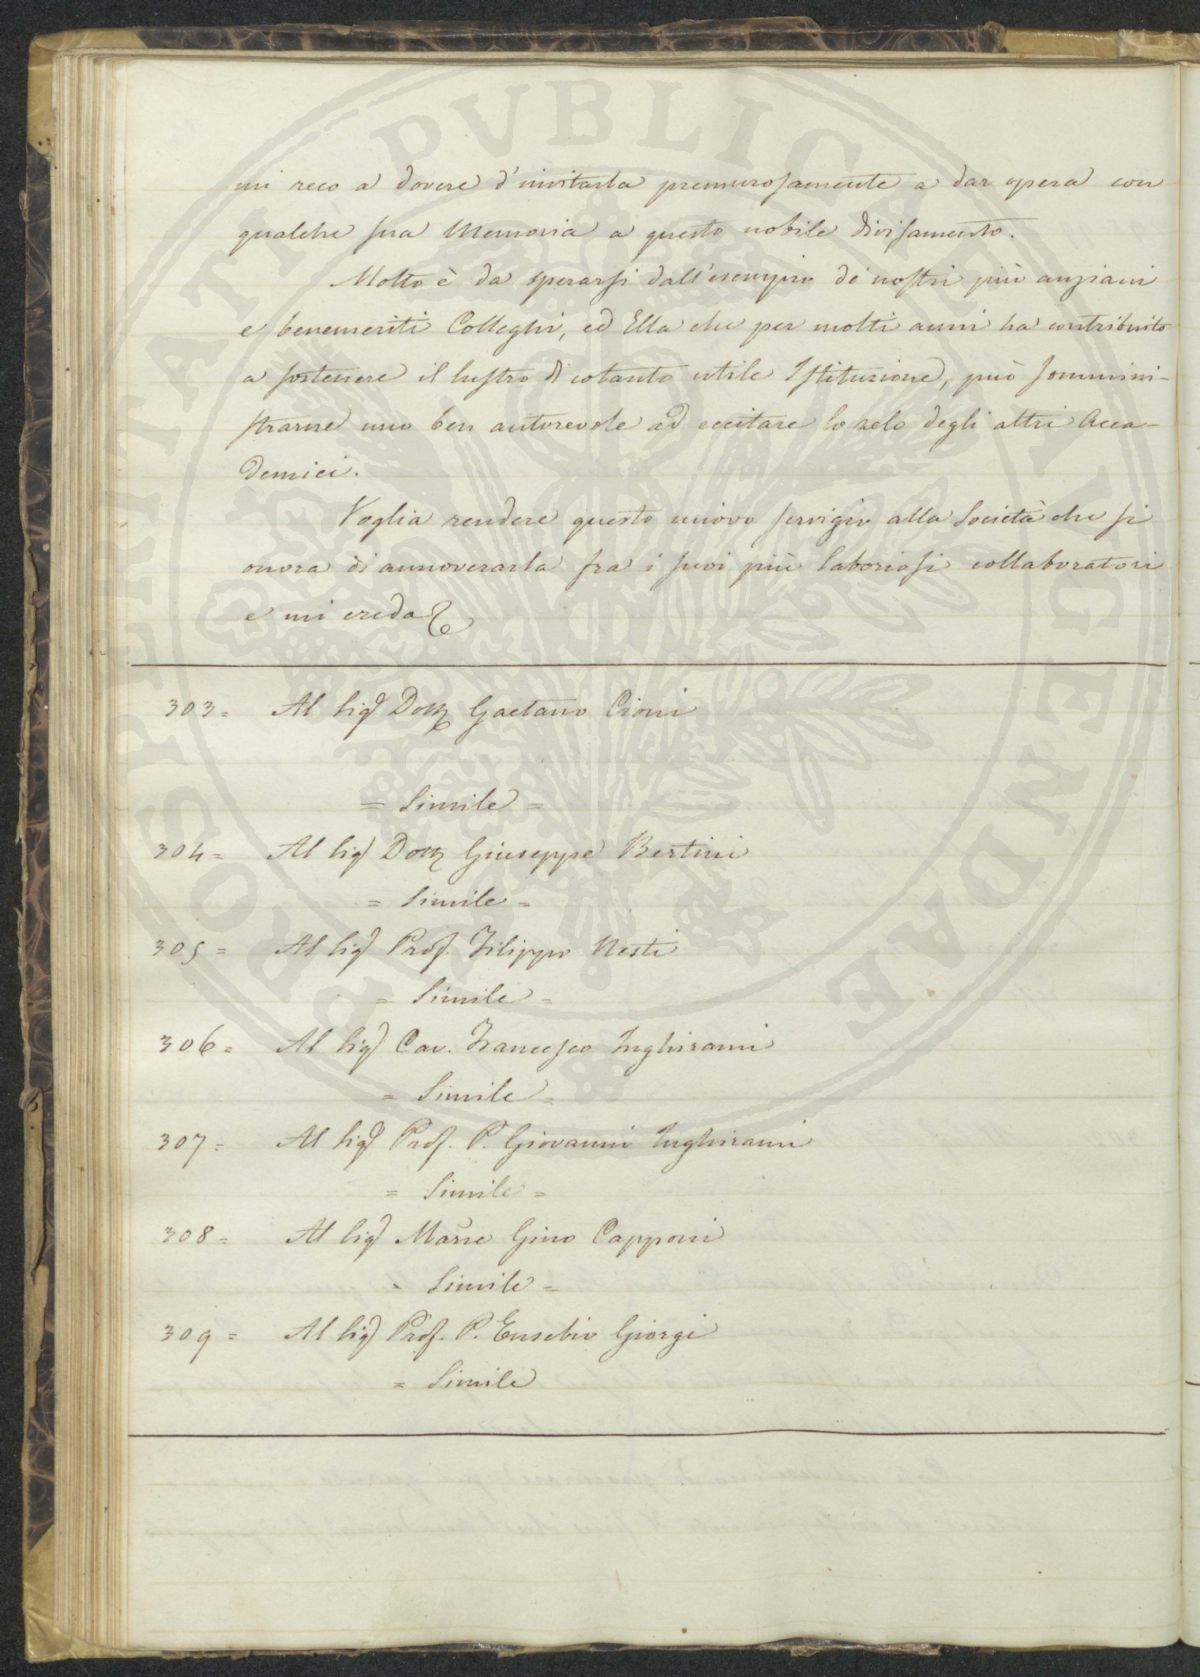 mi reco a dovere d'invitarla premurosamente a dar opera con
qualche sua Memoria a questo nobile divisamento.
Molto è da sperarsi dall'esempio de' nostri più anziani
e benemeriti Colleghi, ed Ella che per molti anni ha contribuito
a sostenere il lustro di cotanto utile Istituzione, può sommini-
strarne uno ben autorevole ad eccitare lo zelo degli altri Acca-
demici.
Voglia rendere questo nuovo servigio alla Società che si
onora di annoverarla fra i suoi più laboriosi collaboratori
e mi creda &
303= Al Sig Dott Gaetano Cioni
= Simile =
304= Al Sig Dott Giuseppe Bertini
= Simile =
305= Al Sig Prof. Filippo Nesti
= Simile =
306= Al Sig Cav. Francesco Inghirami
= Simile =
307= Al Sig Prof. P. Giovanni Inghirami
= Simile =
308= Al Sig Marse Gino Capponi
= Simile =
309= Al Sig Prof. P. Eusebio Giorgi
= Simile
PROSPERITATI PVBLICAE AVGENDAE